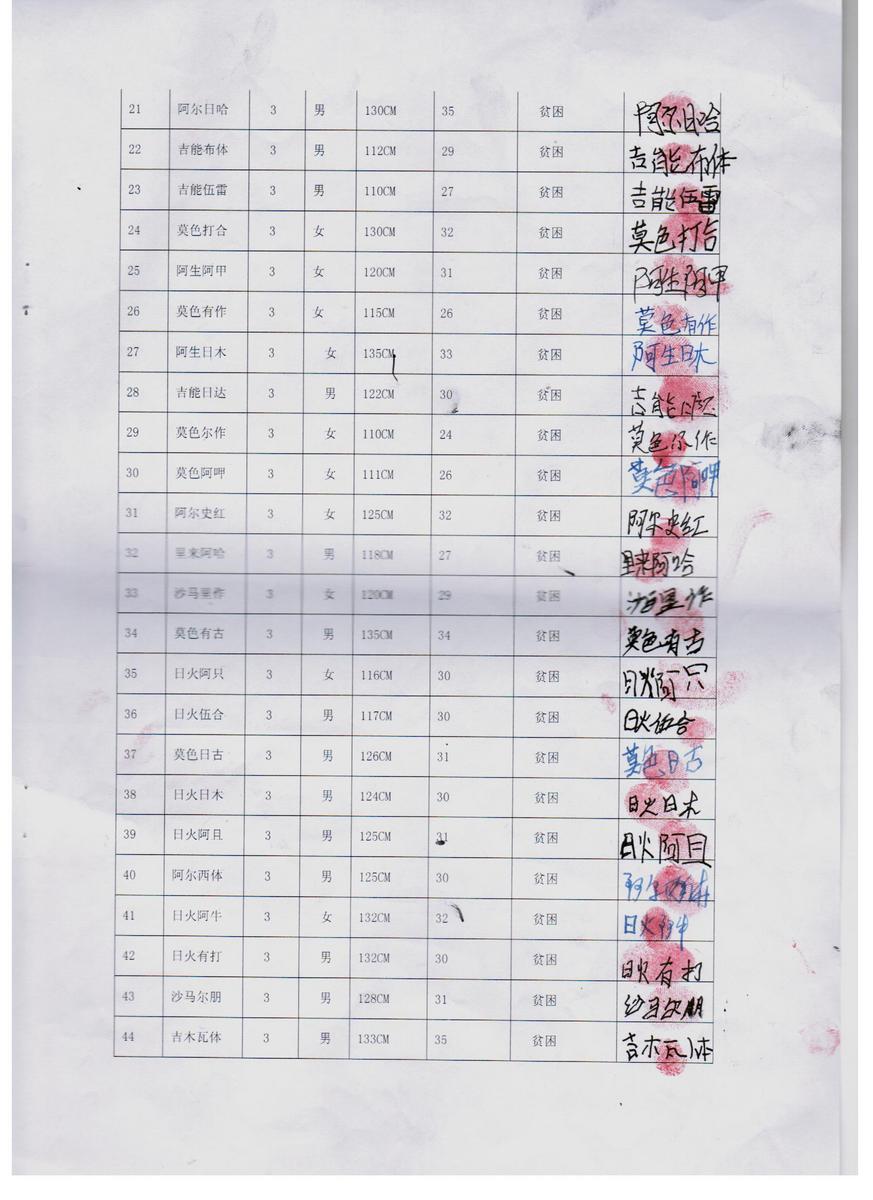 21 阿尔日哈 3 男 130CM 35 贫困 阿尔日哈
22 吉能布体 3 男 112CM 29 贫困 吉能布体
23 吉能伍雷 3 男 110CM 27 贫困 吉能伍雷
24 莫色打合 3 女 130CM 32 贫困 莫色打合
25 阿生阿甲 3 女 120CM 31 贫困 阿生阿甲
26 莫色有作 3 女 115CM 26 贫困 莫色有作
27 阿生日木 3 女 135CM 33 贫困 阿生日木
28 吉能日达 3 男 122CM 30 贫困 吉能日
29 莫色尔作 3 女 110CM 24 贫困 莫色尔作
30 莫色阿呷 3 女 111CM 26 贫困 莫色阿呷
31 阿尔史红 3 女 125CM 32 贫困 阿尔史红
32 里来阿哈 3 男 118CM 27 贫困 里来阿哈
33 沙马里作 3 女 120CM 29 贫困 沙马里作
34 莫色有古 3 男 135CM 34 贫困 莫色有古
35 日火阿只 3 女 116CM 30 贫困 日火阿只
36 日火伍合 3 男 117CM 30 贫困 日火伍合
37 莫色日古 3 男 126CM 31 贫困 莫色日古
38 日火日木 3 男 124CM 30 贫困 日火日木
39 日火阿且 3 男 125CM 31 贫困 日火阿且
40 阿尔西体 3 男 125CM 30 贫困 阿尔西体
41 日火阿牛 3 女 132CM 32 贫困 日火阿牛
42 日火有打 3 男 132CM 30 贫困 日火有打
43 沙马尔朋 3 男 128CM 31 贫困 沙马尔朋
44 吉木瓦体 3 男 133CM 35 贫困 吉木瓦体